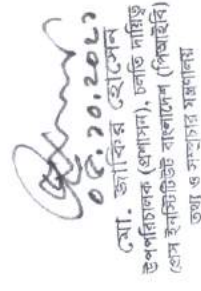 ০৫.১০.২০২১
মো. জাকির হোসেন
উপপরিচালক (প্রশাসন), চলতি দায়িত্ব
প্রেস ইনস্টিটিউট বাংলাদেশ (পিআইবি)
তথ্য ও সম্প্রচার মন্ত্রণালয়